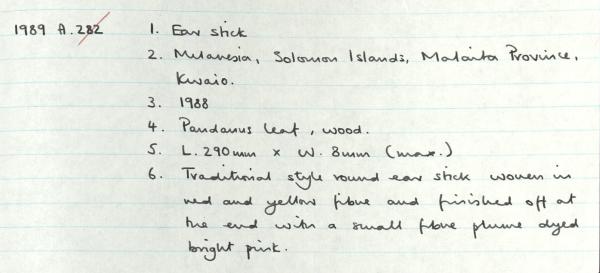 1989 A.282 1. Ear stick
2. Melanesia, Solomon Islands, Malaita Province,
Kwaio.
3. 1988
4. Pandanus leaf, wood.
5. L. 290mm x W. 8mm (max.)
6. Traditional style round ear stick woven in
red and yellow fibre and finished off at
the end with a small fibre plume dyed
bright pink.